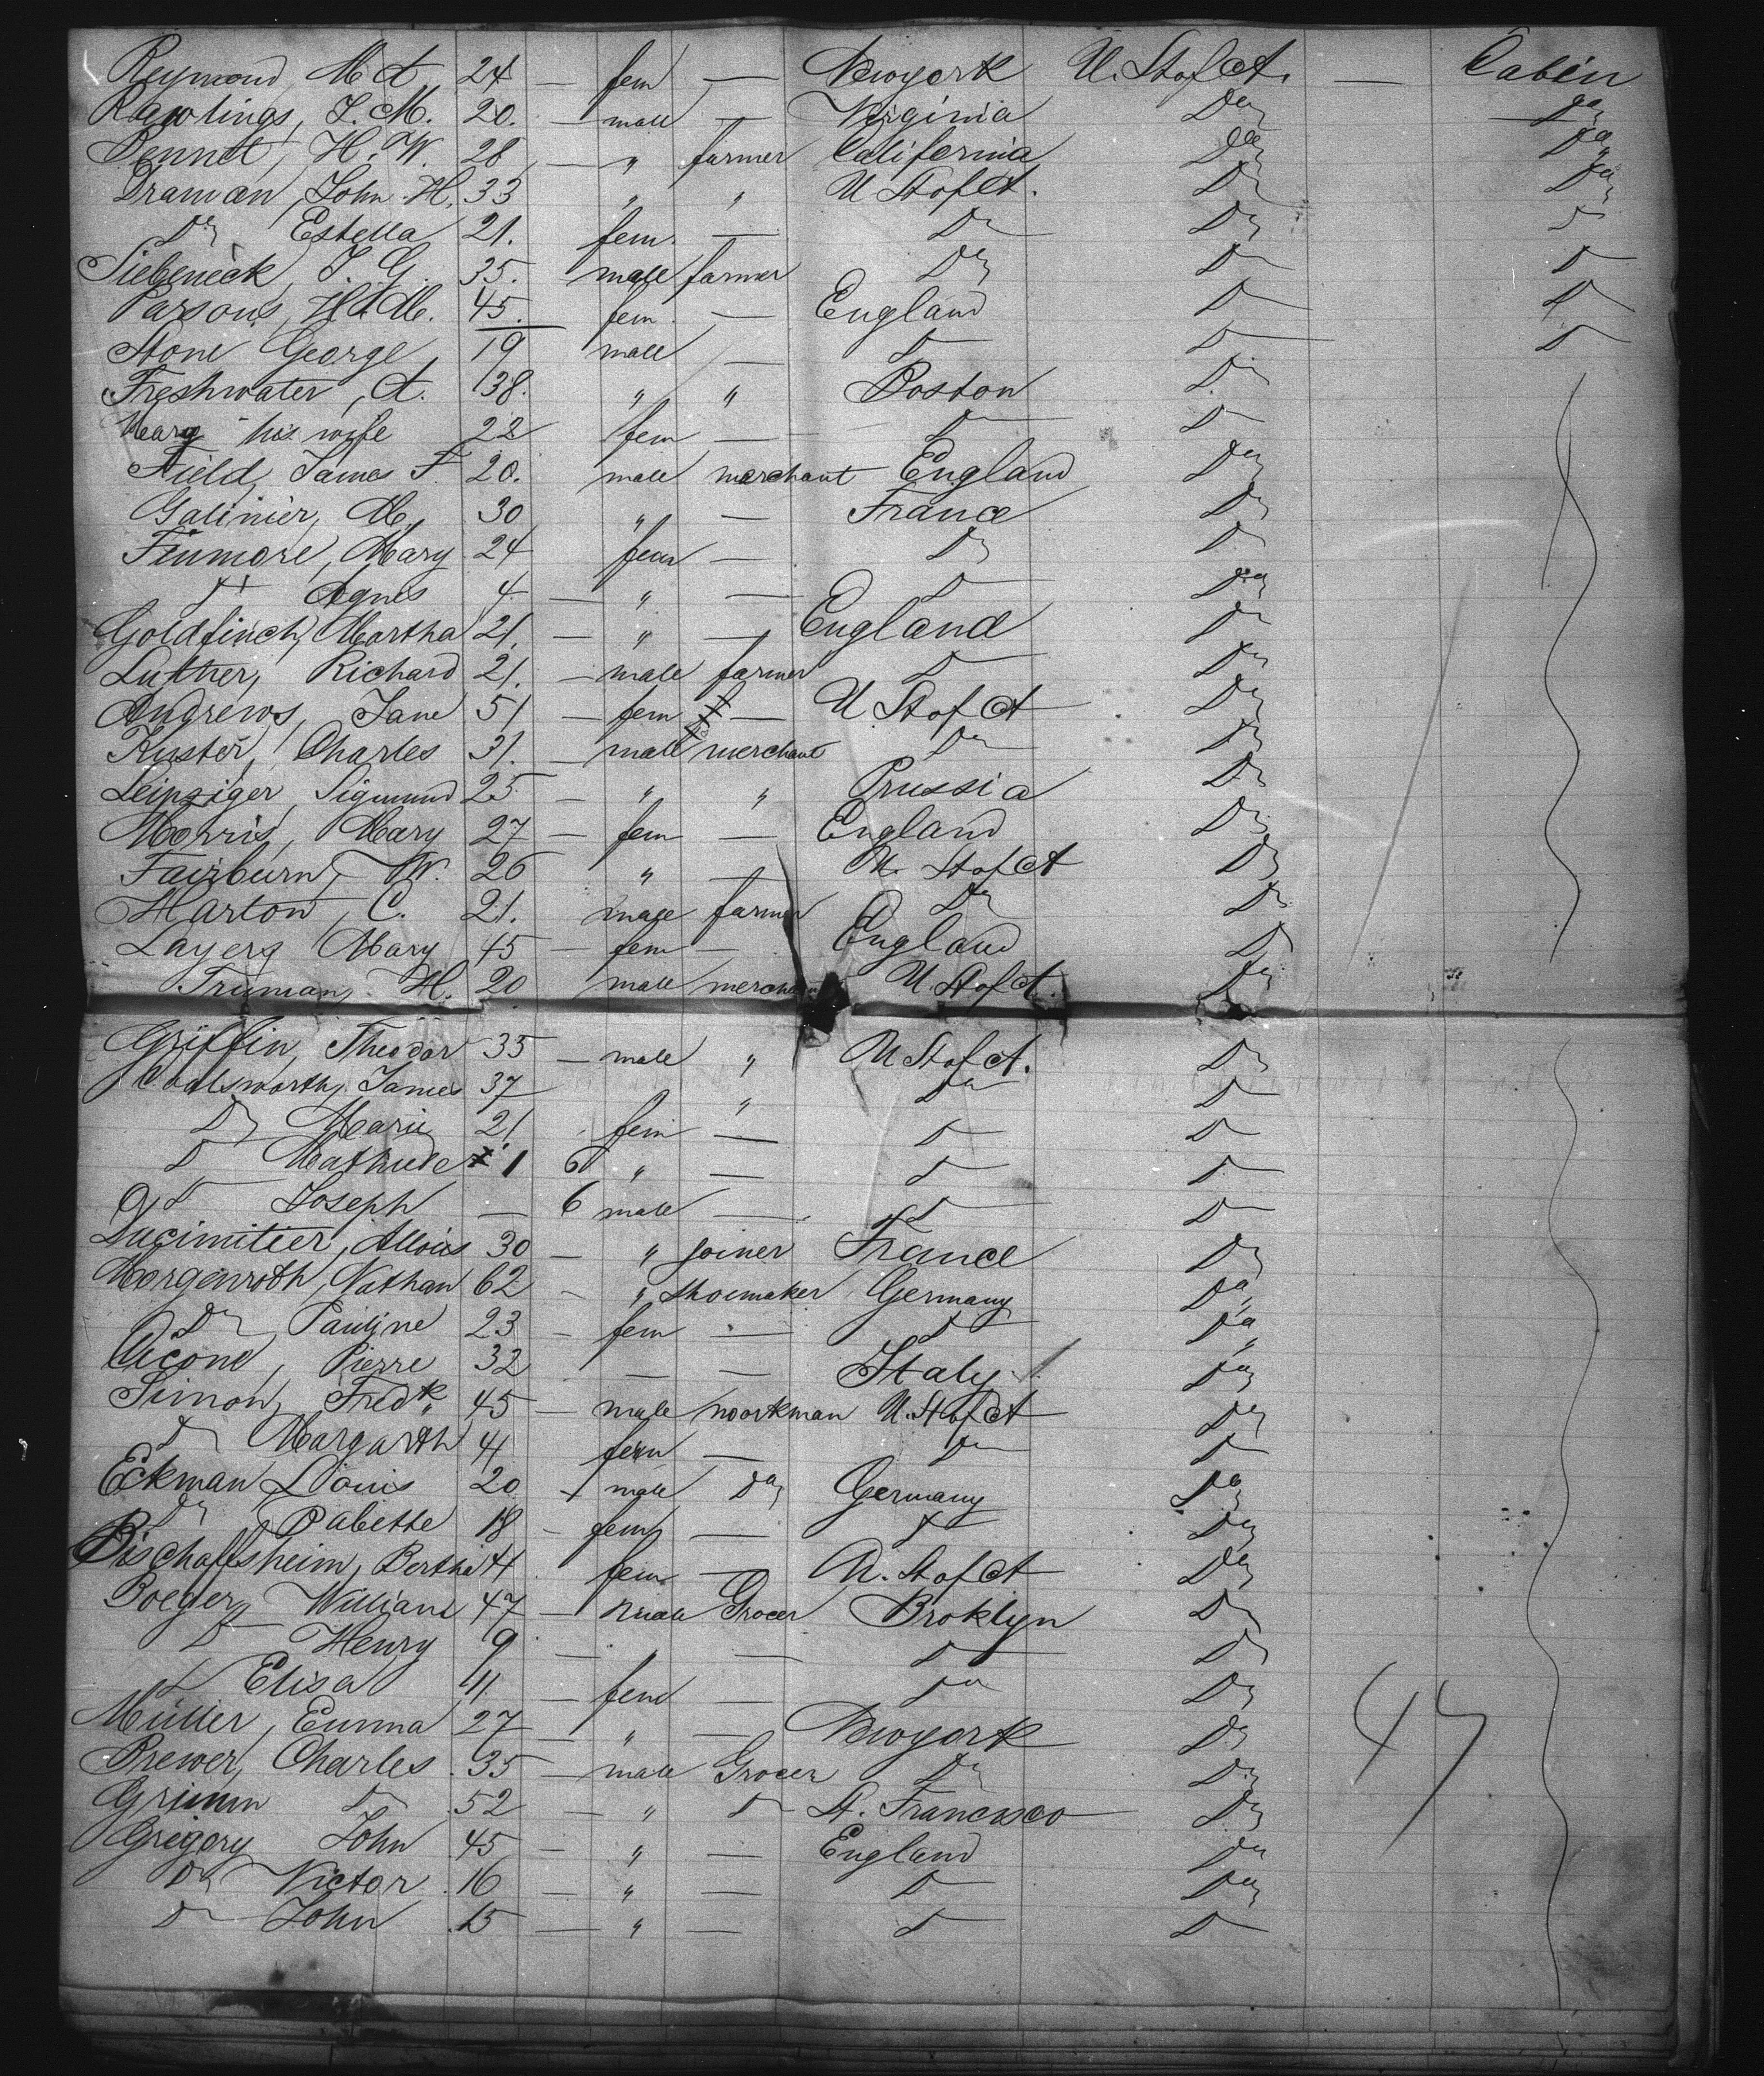 Reymond, M A 24 — fem — Newyork U. St of A. — Cabin
Rawlings, J. M. 20. — male — Virginia Do Do
Bennet, H. W. 28 — " farmer California Do Do
Draman, John H. 33 " " U St of A. Do Do
Do Estella 21. fem. — Do Do D
Siebeneck, J. G. 35. male farmer Do D D
Parsons, H. M. 45. fem. — England D D
Stone George, 19 male — D D D
Freshwater, A. 38. " " Boston D
Mary his wife 22 fem — D D
Field, James F. 20. male merchant England Do
Galinier, M. 30 " — France Do
Finmore, Mary 24 fem — Do D
D Agnes 4 — " — D Do
Goldfinch, Martha 21. — " — England Do
Luther, Richard 21. — male farmer D Do
Andrews, Jane 51 — fem — U St of A Do
Kuster, Charles 31. — male merchant Do Do
Leipziger, Sigmund 25 — " " Prussia Do
Morris, Mary 27 — fem — England Do
Fairburn, W. 26 " — U. St of A Do
Harton, C. 21. male farmer Do Do
Layers Mary 45 — fem — England D
Truman, H. 20 male merchant U. St of A. Do
Griffin, Theodor 35 — male " U St of A. Do
Coalsworthy, James 37 " Do D
Do Marie 21. fem — D D
D Mathilde 1 6 " — D D
D Joseph — 6 male — D D
Ducimitier, Allois 30 — " joiner France Do
Morgenroth, Nathan 62 — " shoemaker Germany Do
Do Pauline 23 — fem — D Do
Cicone, Pierre 32 — — Italy Do
Simon, Fredk 45 — male woorkman U. St of A Do
D Margarth 41 fem — Do D
Eckman Louis 20 — male Do Germany Do
Do Babette 18 — fem — D Do
Bischoffsheim, Bertha 41 fem — U. St of A Do
Boeger, William 47 — male Grocer Broklyn Do
D Henry 9 — " — D Do
D Elisa 11. — fem — Do Do
Müller, Emma 27 — " — Newyork Do
Brewer, Charles 35 — male Grocer Do Do
Grimm D 52 — " D St. Francisco Do
Gregory John 45 — " — England Do
Do Victor 16 — " — D Do
D John 15 — " — D D